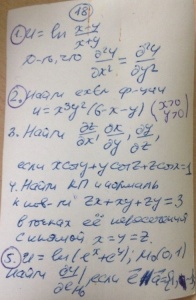 18
1. u = ln x-y / x+y
что ∂²u/∂x² = ∂²u/∂y²
2. Найти экстр ф-ции
u = x³y²(6-x-y) (x>0 y>0)
3. Найти ∂z/∂x, ∂x/∂y, ∂y/∂z,
если x cos y + y cos z + z cos x = 1
4. Найти КП и нормаль
к пов-ти 2x + xy + zy = 3
в точках её пересечения
с прямой x = y = z.
5. u = ln(eˣ + eʸ); M₀(0,1)
Найти ∂u/∂e M₀, если